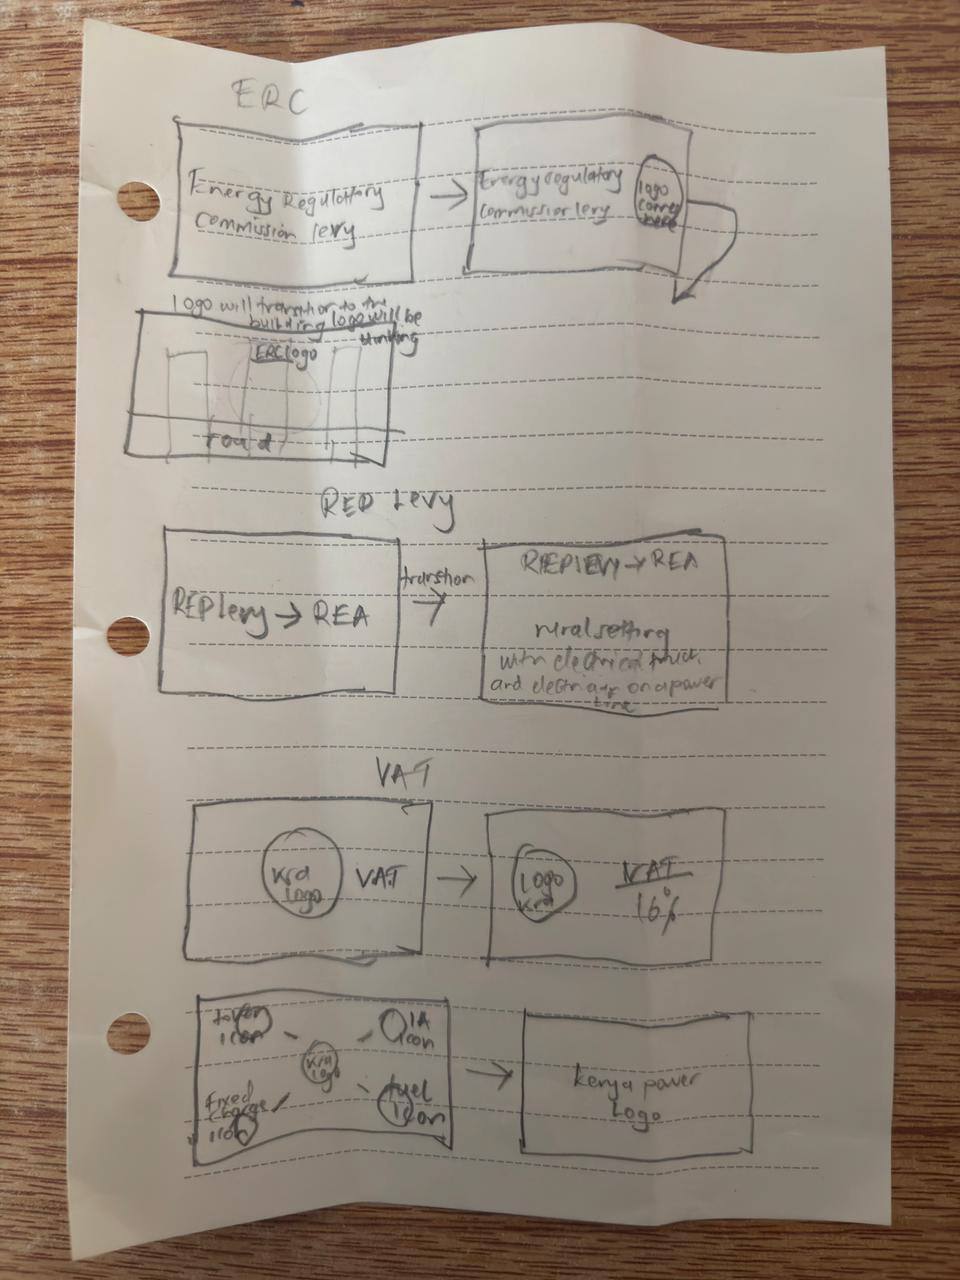 ERC
Energy Regulatory
commission levy
→
Energy regulatory
commission levy
logo
comes
here
logo will transition to the
building logo will be
blinking
ERC logo
road
REP Levy
REP levy → REA
transition
→
REPLEVY → REA
rural setting
with electrical truck.
and electrician on a power
line
VAT
kra
logo
VAT
→
logo
kra
VAT
16%
icon
kra
logo
IA
icon
Fixed
charge
icon
fuel
icon
→
kenya power
logo